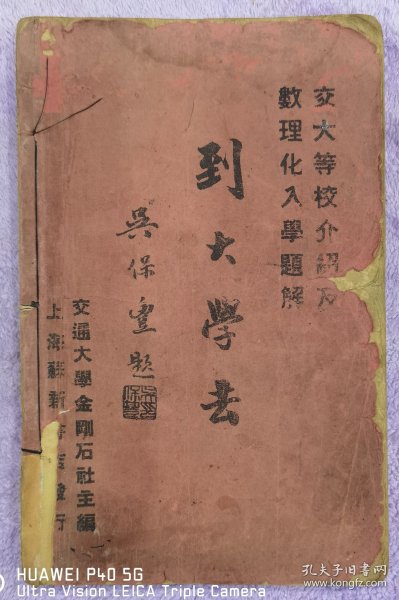 交大等校介紹及
數理化入學題解
到大學去
吳保豐題
交通大學金剛石社主編
上海蘇新書店發行
HUAWEI P40 5G
Ultra Vision LEICA Triple Camera
孔夫子旧书网
www.kongfz.com